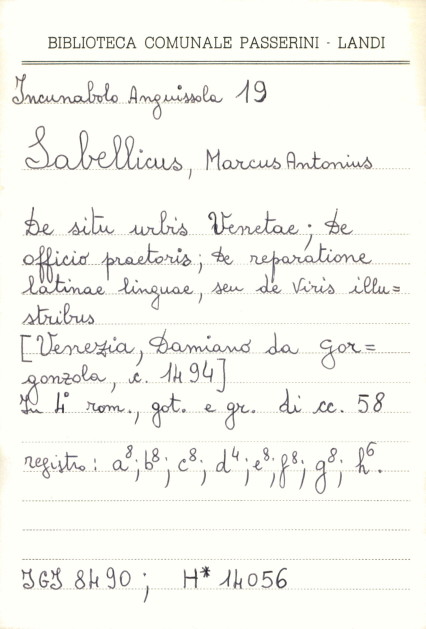 BIBLIOTECA COMUNALE PASSERINI - LANDI
Incunabolo Anguissola 19
Sabellicus, Marcus Antonius
De situ urbis Venetae; De
officio praetoris; De reparatione
latinae linguae, seu de viris illu=
stribus
[Venezia, Damiano da Gor=
gonzola, c. 1494]
In 4° rom., got. e gr. di cc. 58
registro: a⁸; b⁸; c⁸; d⁴; e⁸; f⁸; g⁸; h⁶.
IGI 8490; H* 14056